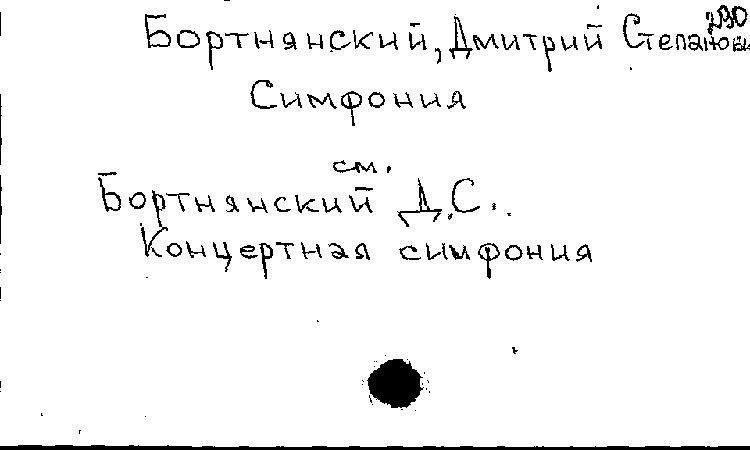 290
Бортнянский, Дмитрий Степанови
Симфония
см.
Бортнянский Д.С.
Концертная симфония